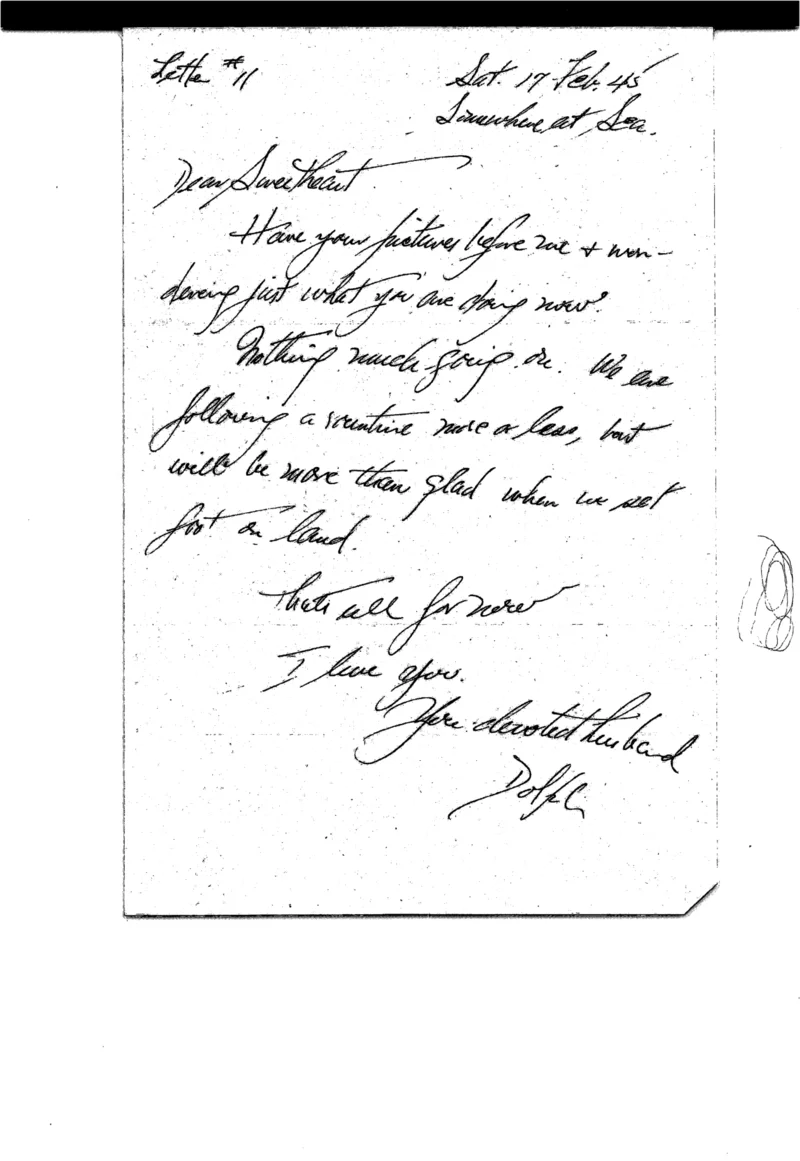 Letter #11
Sat. 17 Feb. 45
Somewhere at Sea.
Dear Sweetheart
Have your pictures before me + won-
dering just what you are doing now?
Nothing much going on. We are
following a routine more or less, but
will be more than glad when we set
foot on land.
Thats all for now
I love you.
Your devoted husband
Dolph